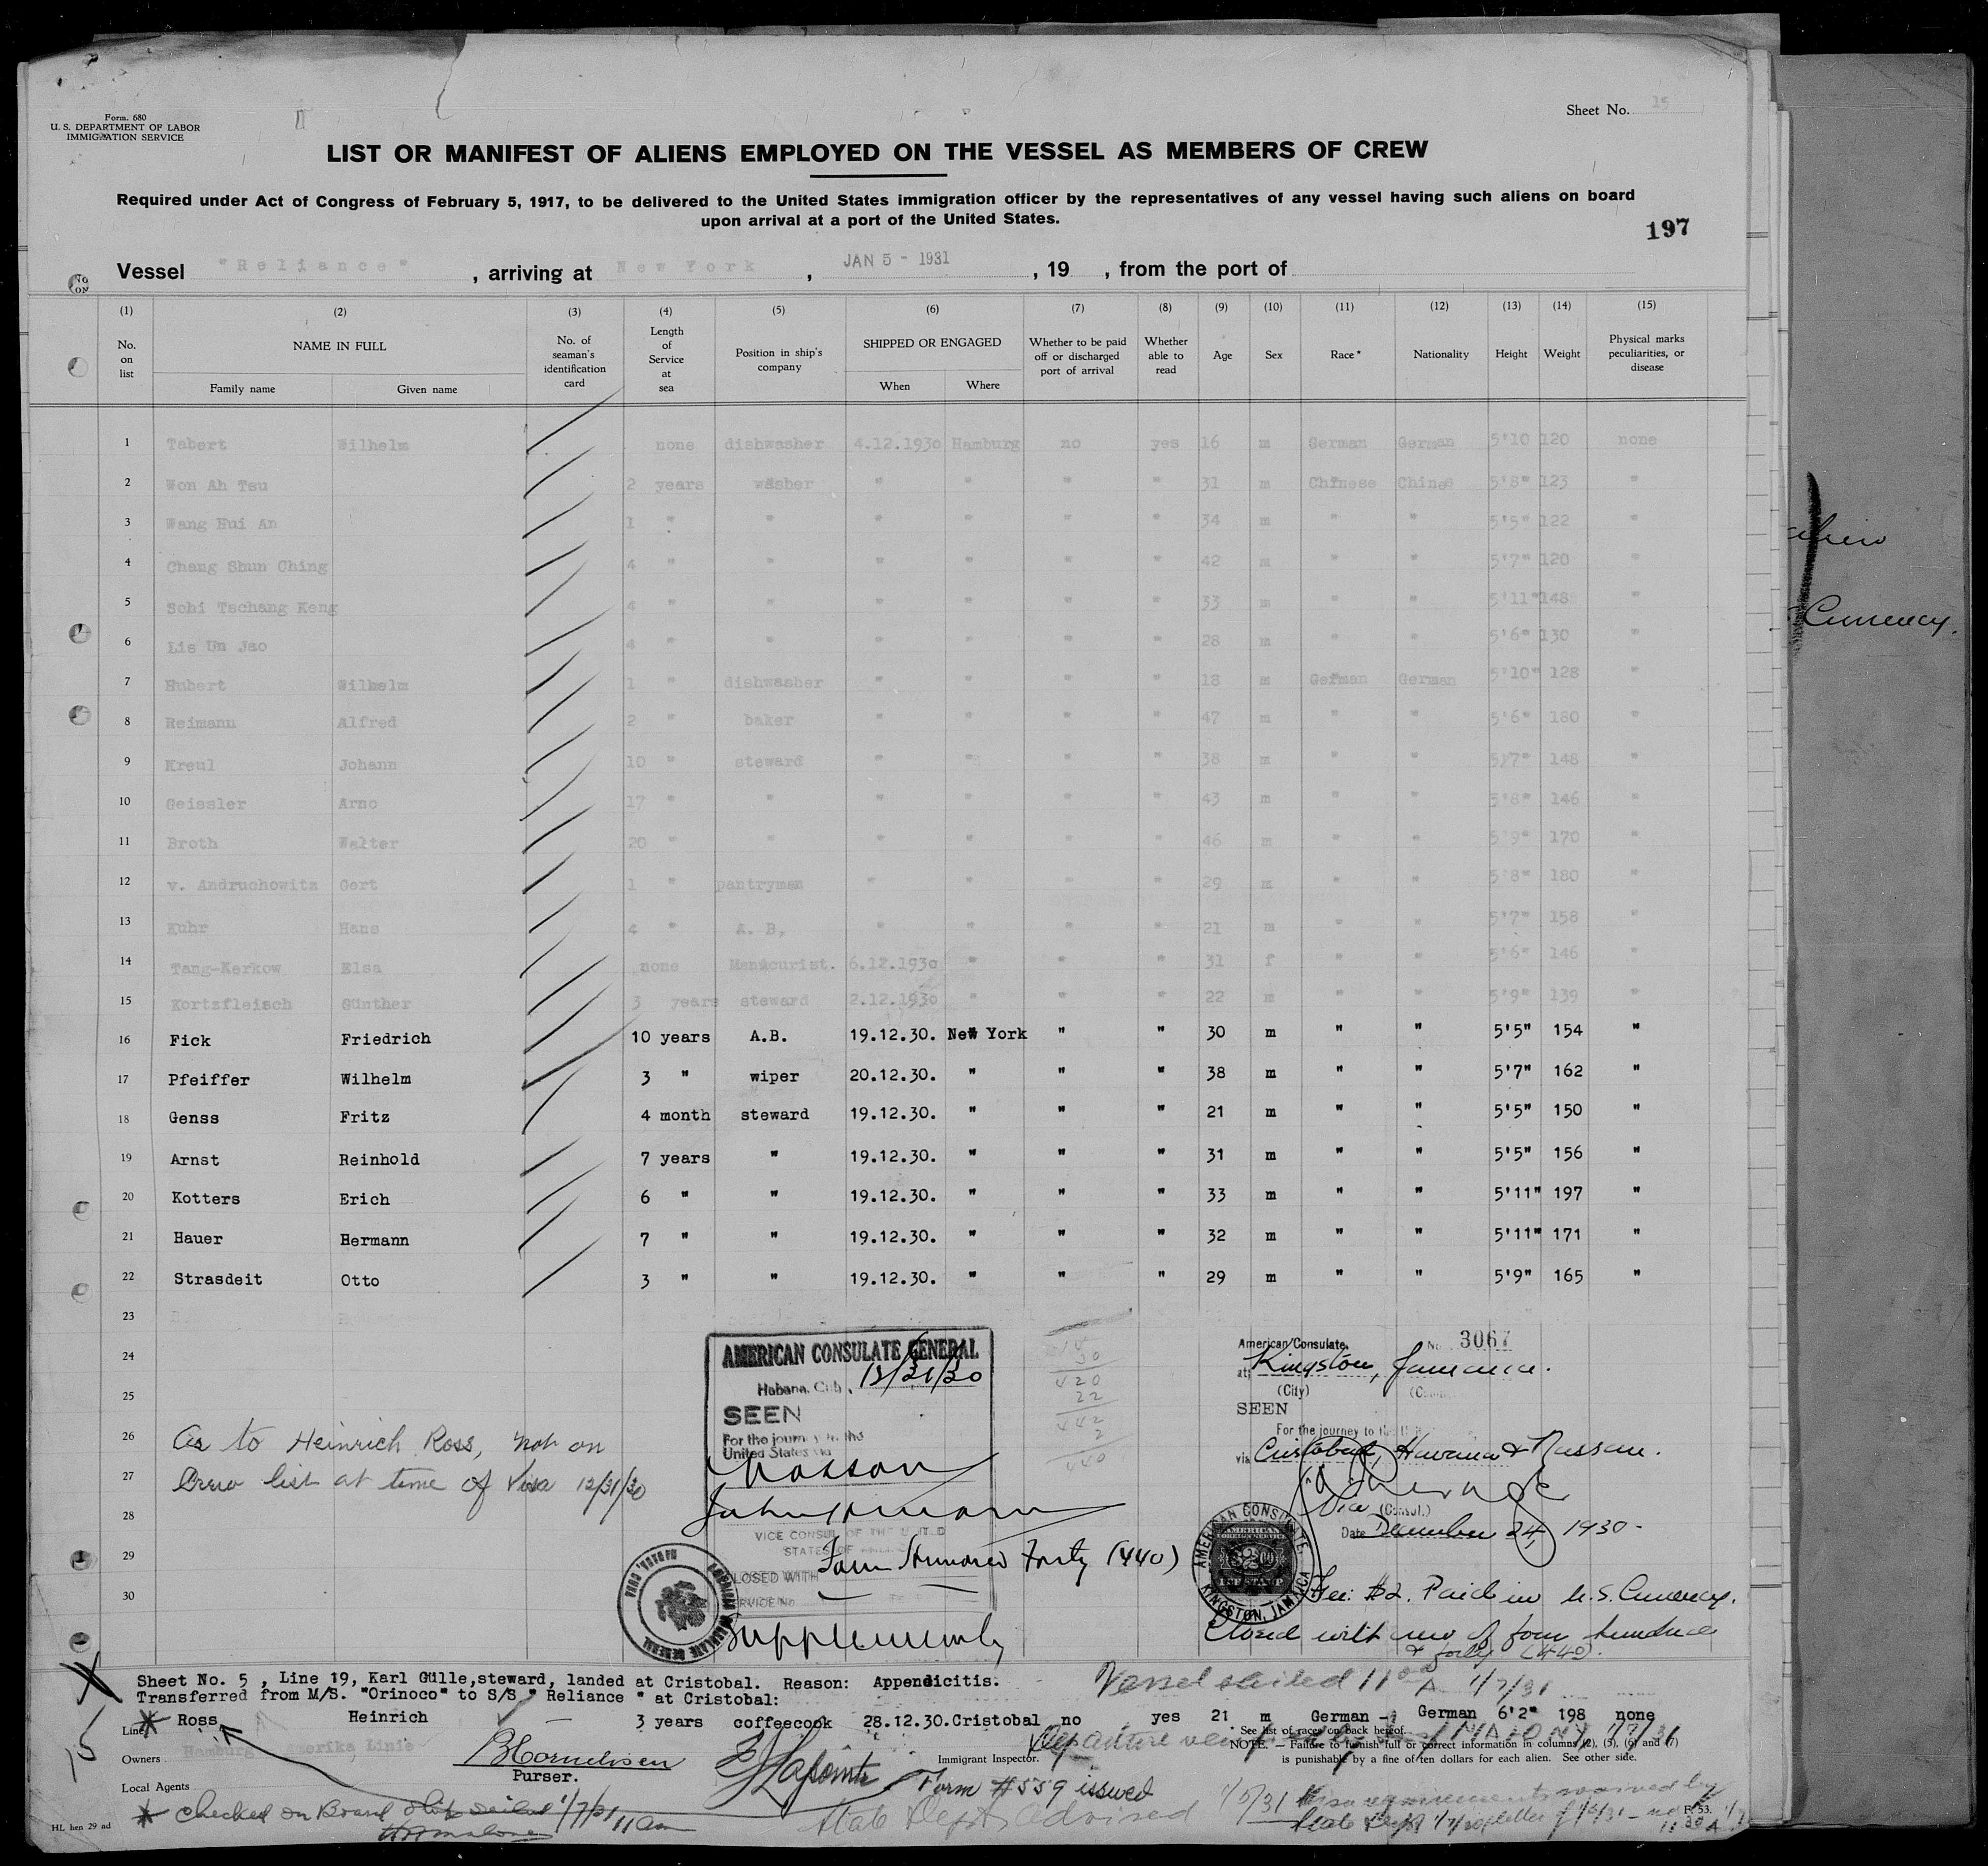 Form. 680
U. S. DEPARTMENT OF LABOR
IMMIGRATION SERVICE
Sheet No. 15
LIST OR MANIFEST OF ALIENS EMPLOYED ON THE VESSEL AS MEMBERS OF CREW
Required under Act of Congress of February 5, 1917, to be delivered to the United States immigration officer by the representatives of any vessel having such aliens on board
upon arrival at a port of the United States.
197
Vessel "Reliance" , arriving at New York , JAN 5 - 1931 , 19 , from the port of
(1) (2) (3) (4) (5) (6) (7) (8) (9) (10) (11) (12) (13) (14) (15)
No. on list
NAME IN FULL
Family name Given name
No. of seaman's identification card
Length of Service at sea
Position in ship's company
SHIPPED OR ENGAGED
When Where
Whether to be paid off or discharged port of arrival
Whether able to read
Age Sex Race* Nationality Height Weight
Physical marks peculiarities, or disease
1 Tabert Wilhelm none dishwasher 4.12.1930 Hamburg no yes 16 m German German 5'10 120 none
2 Won Ah Tsu 2 years washer " " " " 31 m Chinese Chines 5'8" 123 "
3 Wang Hui An 1 " " " " " " 34 m " " 5'5" 122 "
4 Chang Shun Ching 4 " " " " " " 42 m " " 5'7" 120 "
5 Schi Tschang Keng 4 " " " " " " 33 m " " 5'11" 148 "
6 Lis Un Jao 4 " " " " " " 28 m " " 5'6" 130 "
7 Hubert Wilhelm 1 " dishwasher " " " " 18 m German German 5'10" 128 "
8 Reimann Alfred 2 " baker " " " " 47 m " " 5'6" 180 "
9 Kreul Johann 10 " steward " " " " 38 m " " 5'7" 148 "
10 Geissler Arno 17 " " " " " " 43 m " " 5'8" 146 "
11 Broth Walter 20 " " " " " " 46 m " " 5'9" 170 "
12 v. Andruchowitz Gert 1 " pantryman " " " " 29 m " " 5'8" 180 "
13 Kuhr Hans 4 " A. B, " " " " 21 m " " 5'7" 158 "
14 Tang-Kerkow Elsa none Manicurist. 6.12.1930 " " " 31 f " " 5'6" 146 "
15 Kortzfleisch Günther 3 years steward 2.12.1930 " " " 22 m " " 5'9" 139 "
16 Fick Friedrich 10 years A.B. 19.12.30. New York " " 30 m " " 5'5" 154 "
17 Pfeiffer Wilhelm 3 " wiper 20.12.30. " " " 38 m " " 5'7" 162 "
18 Genss Fritz 4 month steward 19.12.30. " " " 21 m " " 5'5" 150 "
19 Arnst Reinhold 7 years " 19.12.30. " " " 31 m " " 5'5" 156 "
20 Kotters Erich 6 " " 19.12.30. " " " 33 m " " 5'11" 197 "
21 Hauer Hermann 7 " " 19.12.30. " " " 32 m " " 5'11" 171 "
22 Strasdeit Otto 3 " " 19.12.30. " " " 29 m " " 5'9" 165 "
23
24
25
26
27
28
29
30
As to Heinrich Ross, not on
Crew list at time of Visa 12/31/30
AMERICAN CONSULATE GENERAL
Habana, Cuba, 12/31/30
SEEN
For the journey to the
United States via
Nassau
VICE CONSUL OF THE UNITED
STATES OF
CLOSED WITH Four Hundred Forty (440)
SERVICE No.
420
22
442
2
440
American Consulate. No. 3067
at Kingston, Jamaica.
(City)
SEEN
For the journey to the
via Cristobal, Havana & Nassau.
Vice (Consul.)
Date December 24, 1930-
AMERICAN CONSULATE, KINGSTON, JAMAICA
AMERICAN
FOREIGN SERVICE
Fee: $2. Paid in U.S. Currency.
Closed with crew of four hundred
& forty (440).
Sheet No. 5 , Line 19, Karl Gülle,steward, landed at Cristobal. Reason: Appendicitis.
Transferred from M/S. "Orinoco" to S/S " Reliance " at Cristobal:
Vessel sailed 11 00 A 1/7/31
Ross Heinrich 3 years coffeecook 28.12.30.Cristobal no yes 21 m German German 6'2" 198 none
Line
* See list of races on back hereof.
Owners Hamburg Amerika Linie
Purser.
Immigrant Inspector.
NOTE. — Failure to furnish full or correct information in columns (2), (5), (6) and (7)
is punishable by a fine of ten dollars for each alien. See other side.
Local Agents
Form #559 issued
* Checked on Board Ship sailed 1/7/31 11 am
State Dept. advised 1/5/31
HL hen 29 ad
F. 53.
Currency.